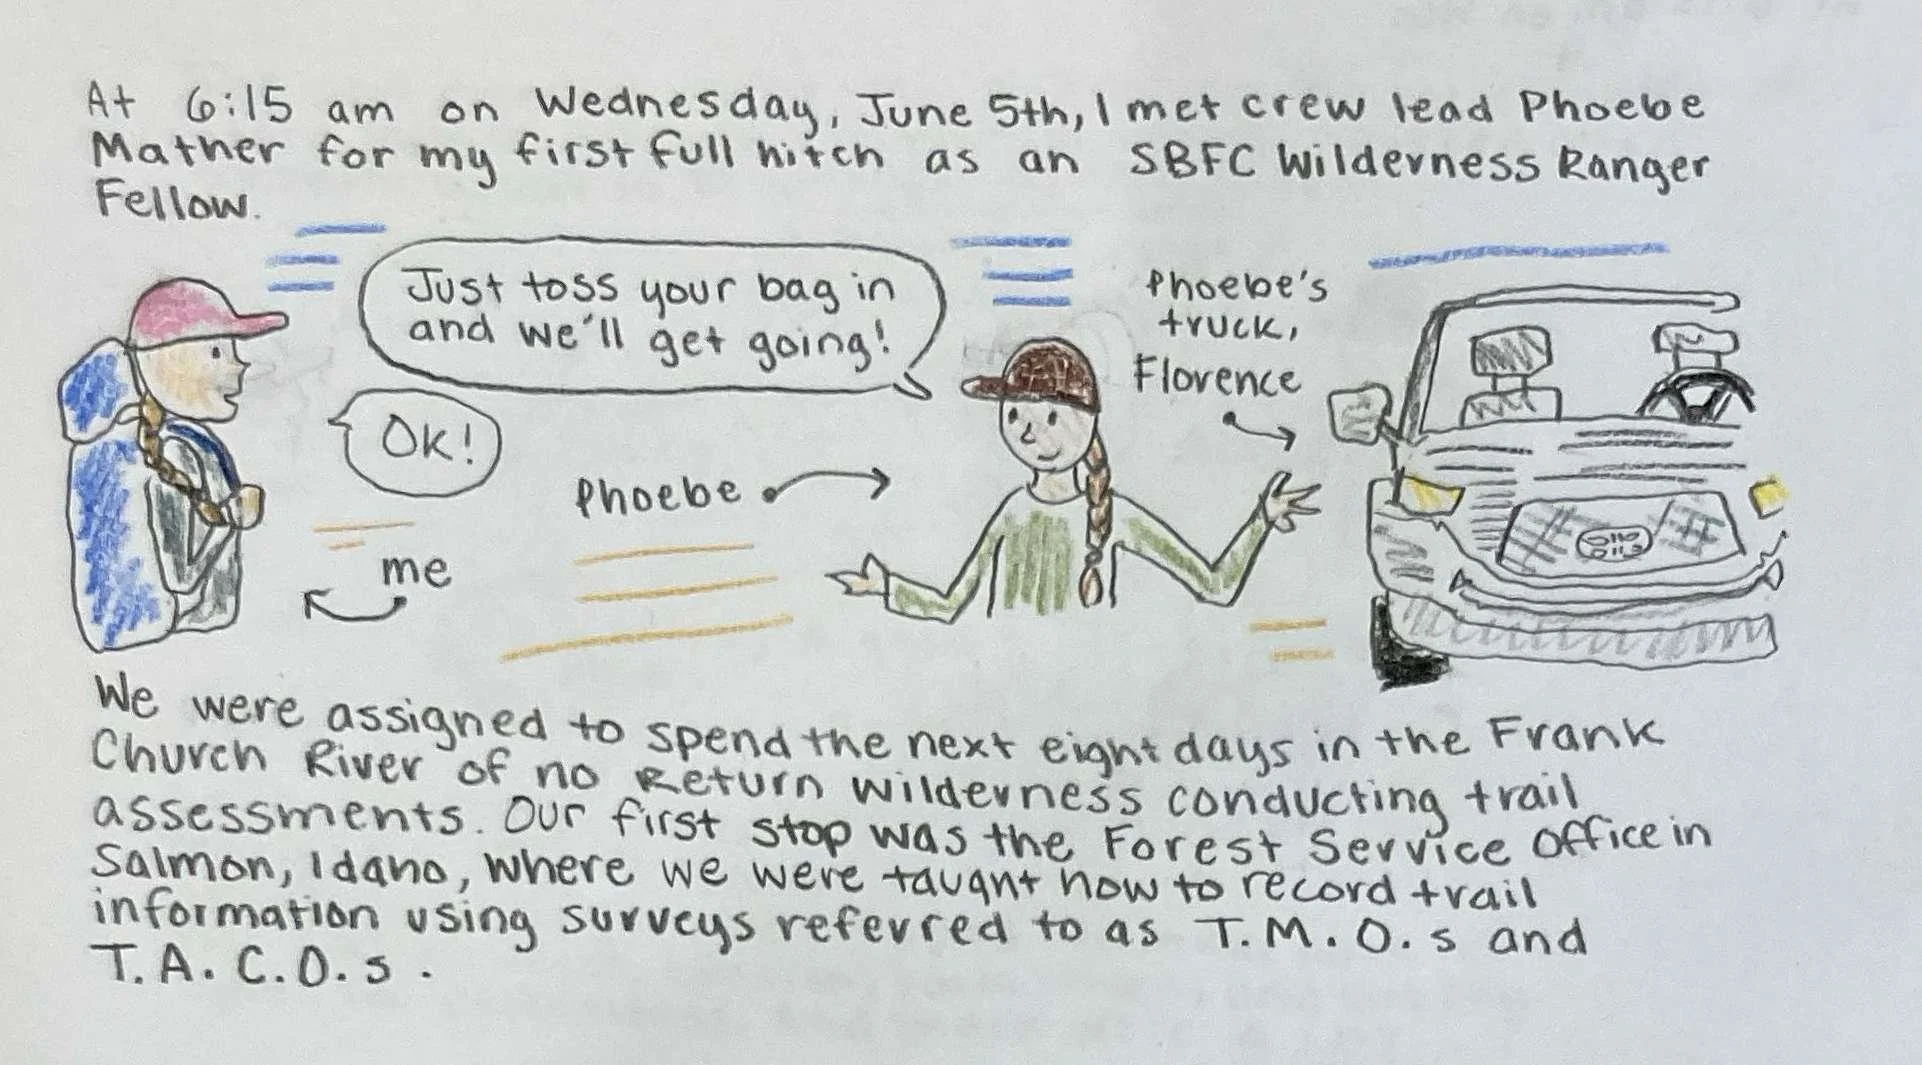 At 6:15 am on Wednesday, June 5th, I met crew lead Phoebe
Mather for my first full hitch as an SBFC Wilderness Ranger
Fellow.
Just toss your bag in
and we'll get going!
OK!
Phoebe's
truck,
Florence
Phoebe
me
We were assigned to spend the next eight days in the Frank
Church River of no Return Wilderness conducting trail
assessments. Our first stop was the Forest Service Office in
Salmon, Idaho, where we were taught how to record trail
information using surveys referred to as T.M.O.s and
T.A.C.O.s.